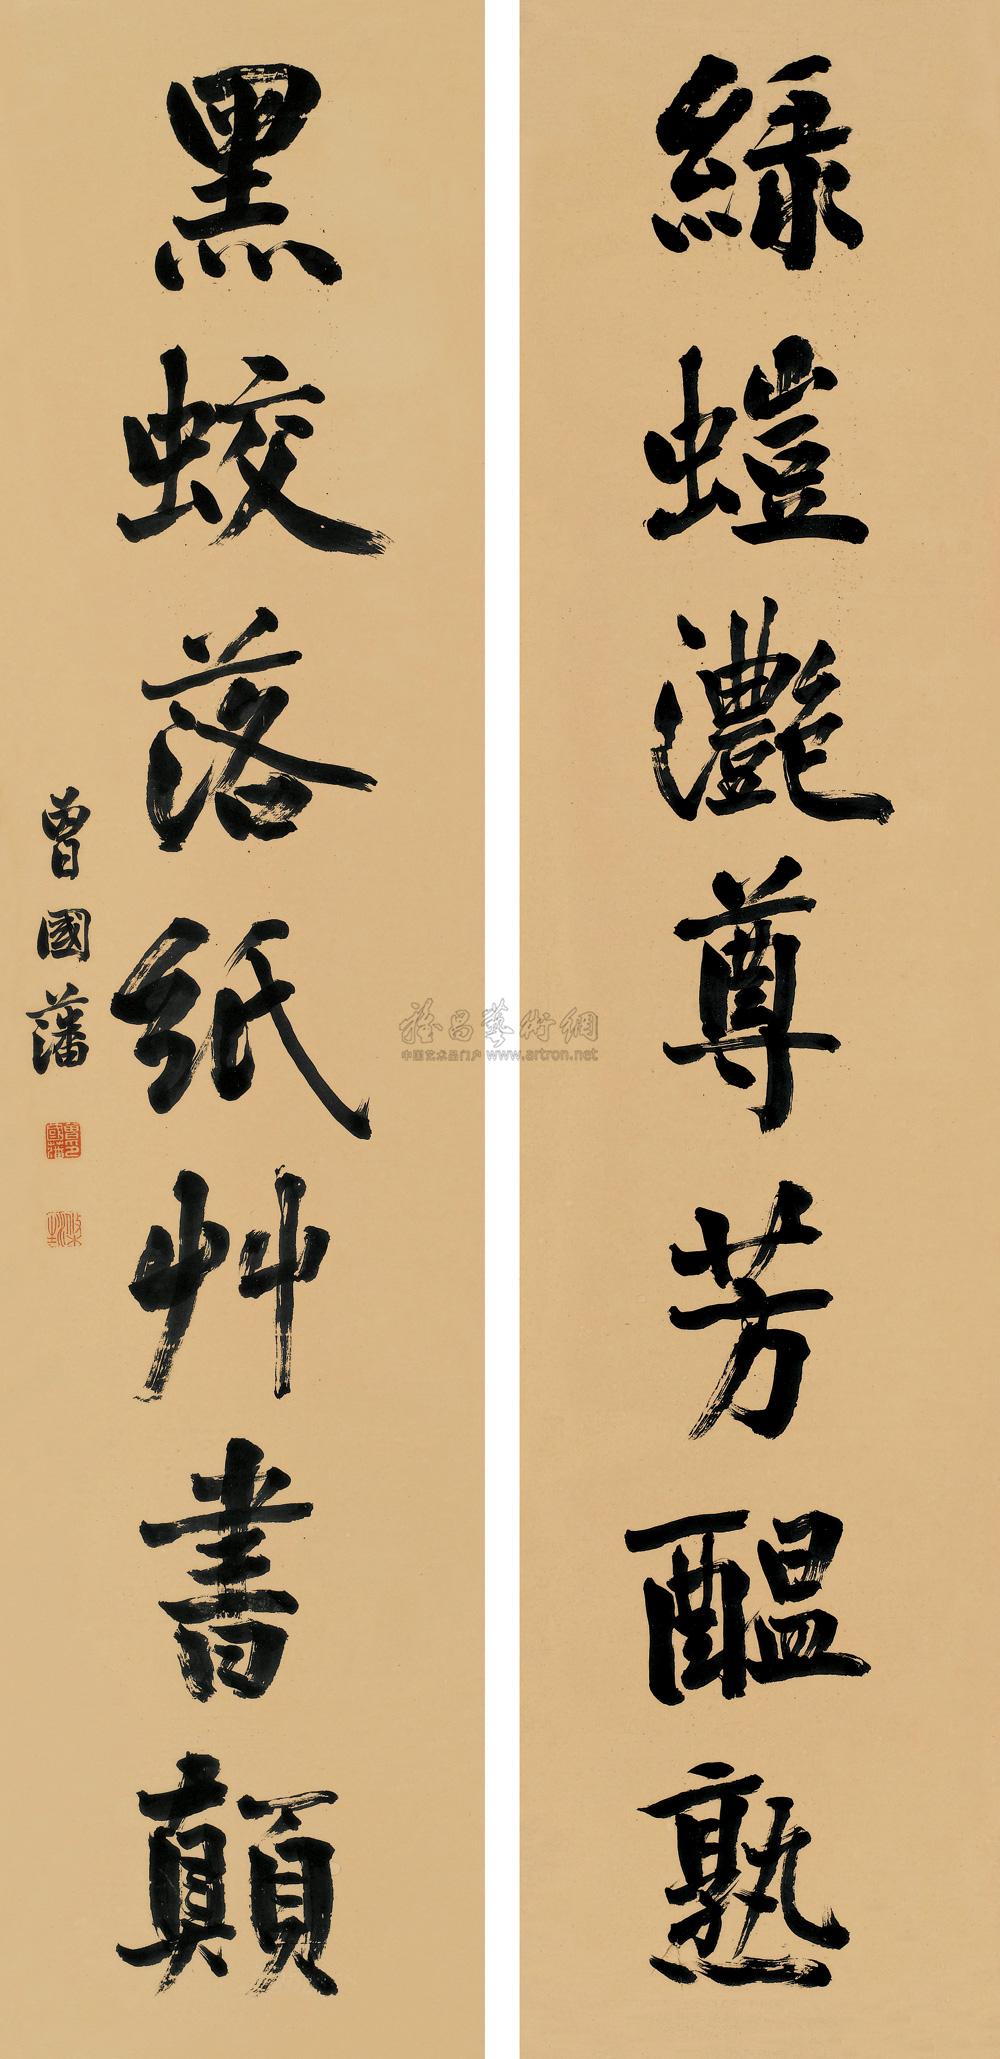 綠螘灧尊芳醖熟
黑蛟落紙艸書顛
曾國藩
曾國藩印
雅昌藝術網
中国艺术品门户 www.artron.net